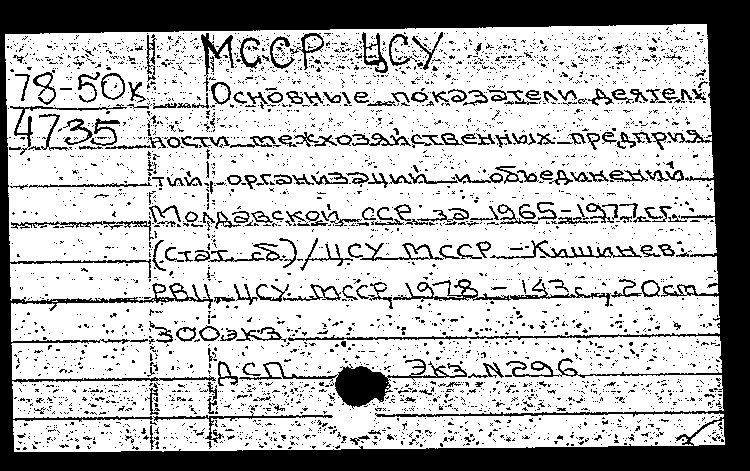 МССР ЦСУ
78-50к Основные показатели деятель
4735 ности межхозяйственных предприя
тий, организаций и объединений
Молдавской ССР за 1965-1977 гг.:
(Стат. сб)/ЦСУ МССР. - Кишинев:
РВЦ ЦСУ МССР, 1978. - 143 с.; 20 см -
300 экз.
ДСП Экз. N 296